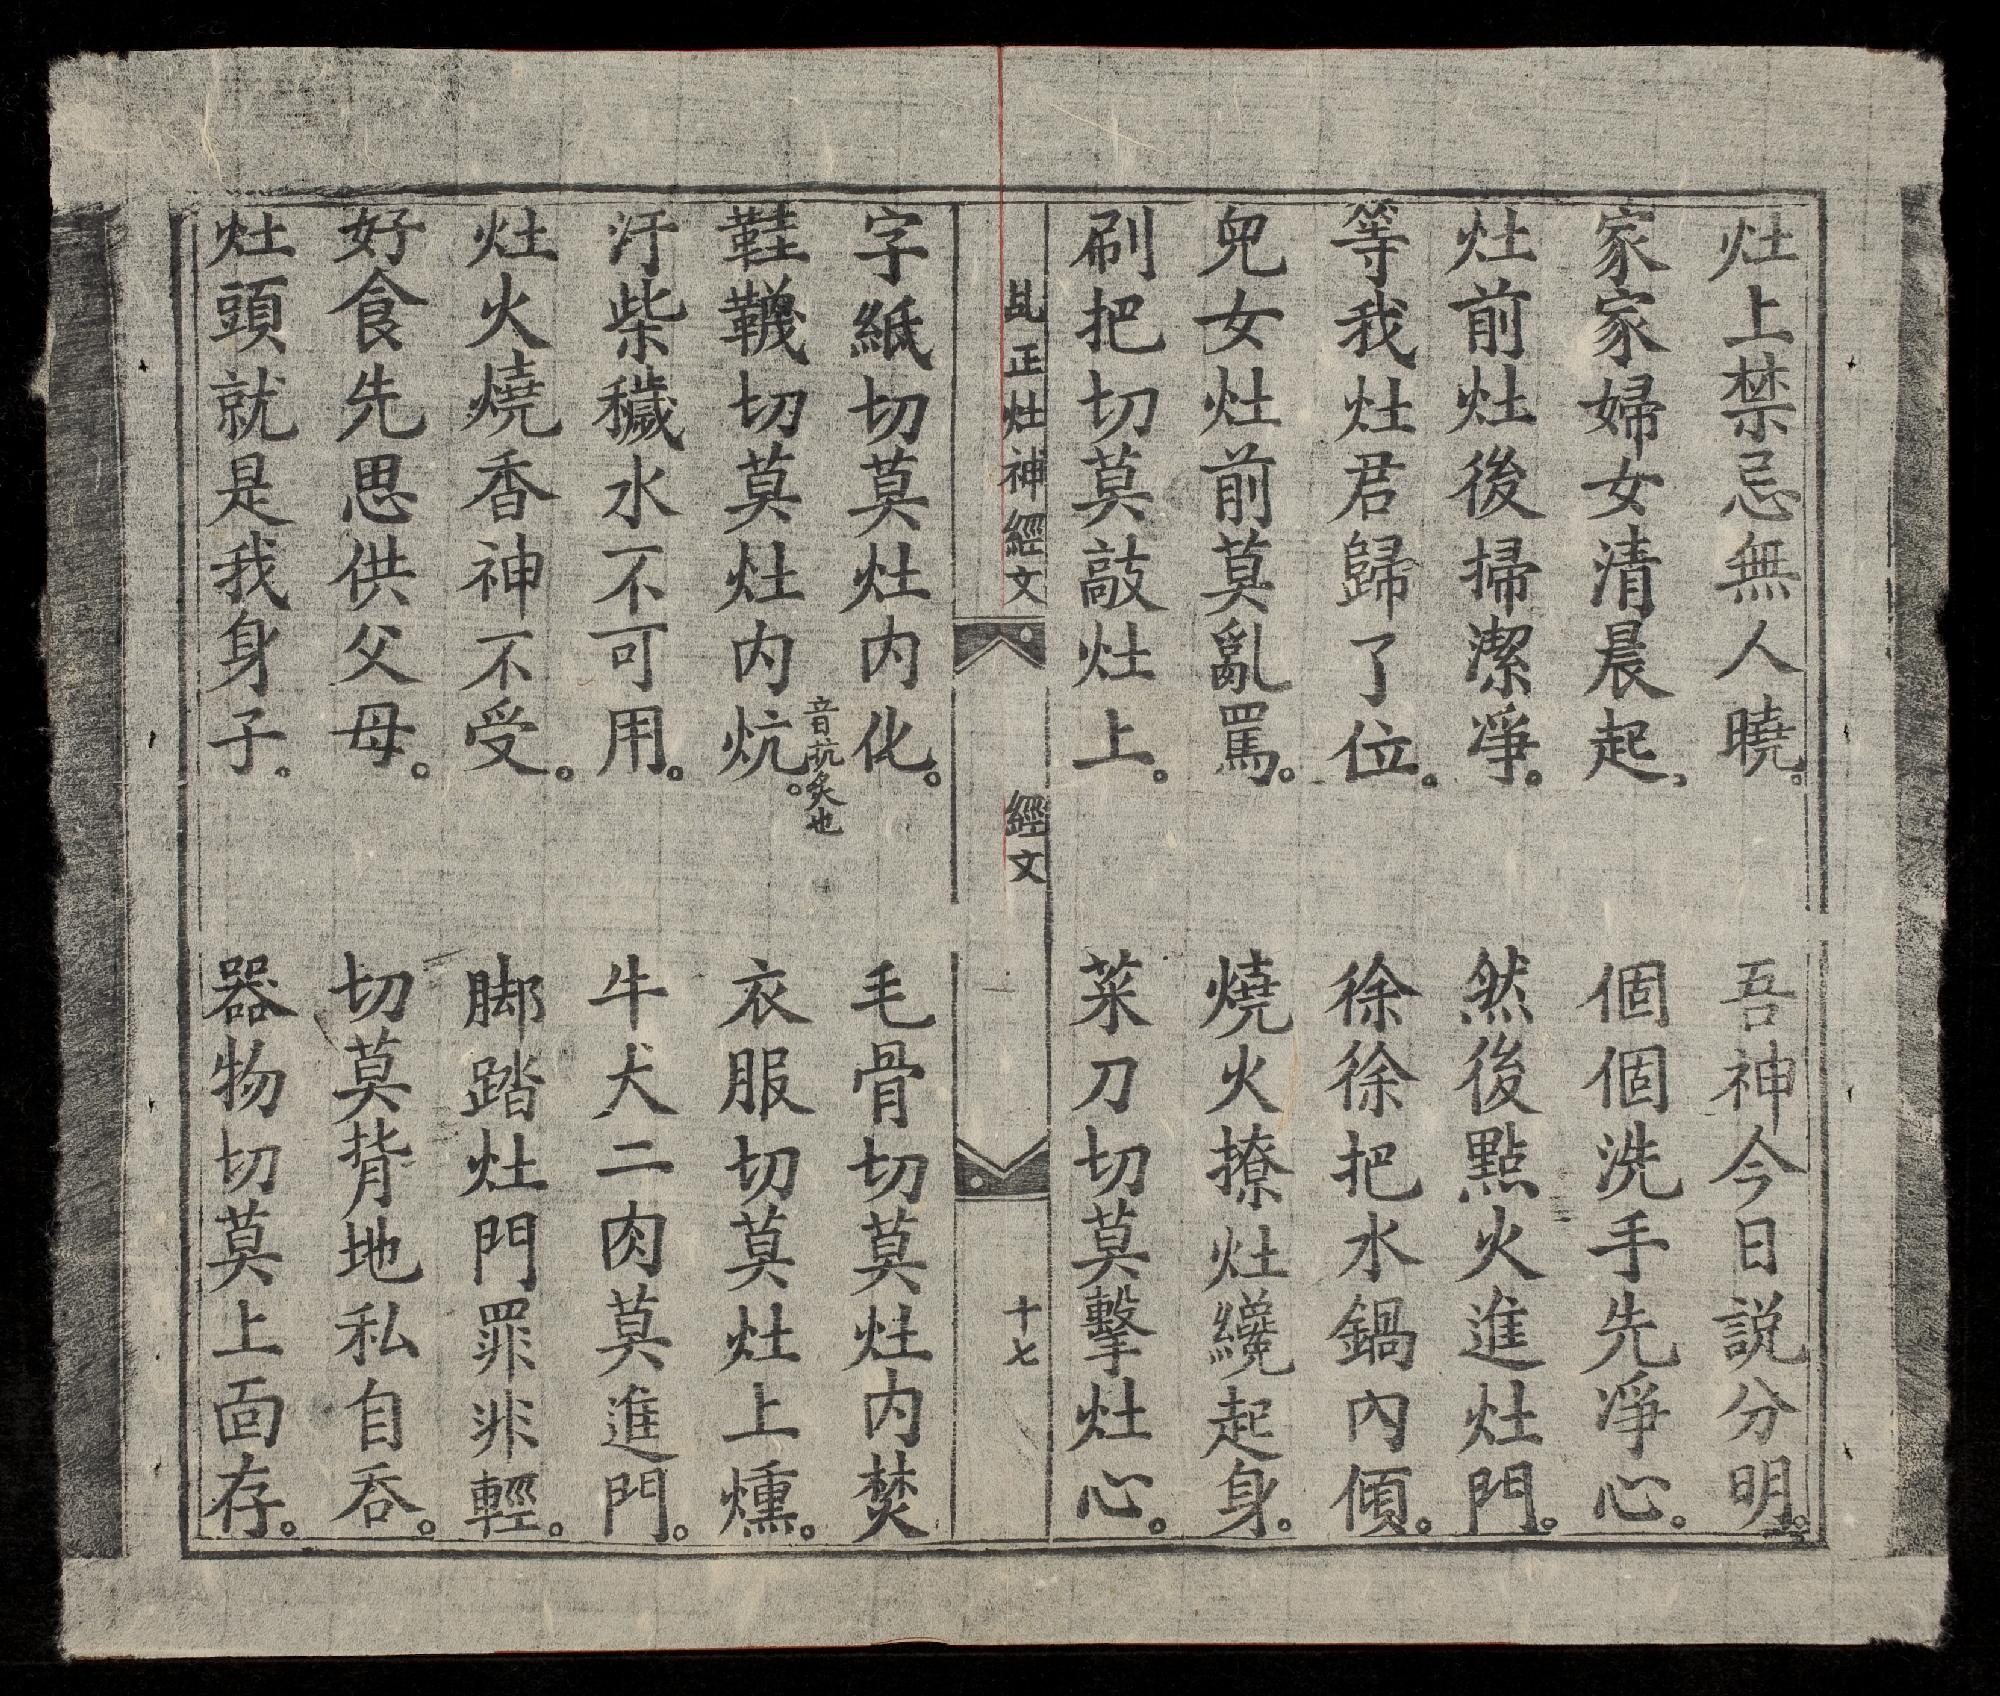 灶上禁忌無人曉。吾神今日説分明。
家家婦女清晨起。個個洗手先凈心。
灶前灶後掃潔凈。然後點火進灶門。
等我灶君歸了位。徐徐把水鍋內傾。
兒女灶前莫亂罵。燒火撩灶纔起身。
刷把切莫敲灶上。菜刀切莫擊灶心。
正灶神經文 經文 十七
字紙切莫灶内化。毛骨切莫灶内焚
鞋韈切莫灶内炕。音抗炙也 衣服切莫灶上燻。
汙柴穢水不可用。牛犬二肉莫進門。
灶火燒香神不受。脚踏灶門罪非輕。
好食先思供父母。切莫背地私自吞。
灶頭就是我身子。器物切莫上面存。